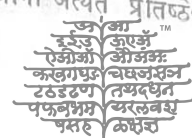 प्रतिष्ठ
अ आ ™
इईउ ऊएॲ
ऐओऑ औअंअः
कखगघङ चछजझञ
टठडढण तथदधन
पफबभम यरलवश
षसह ळक्षज्ञ